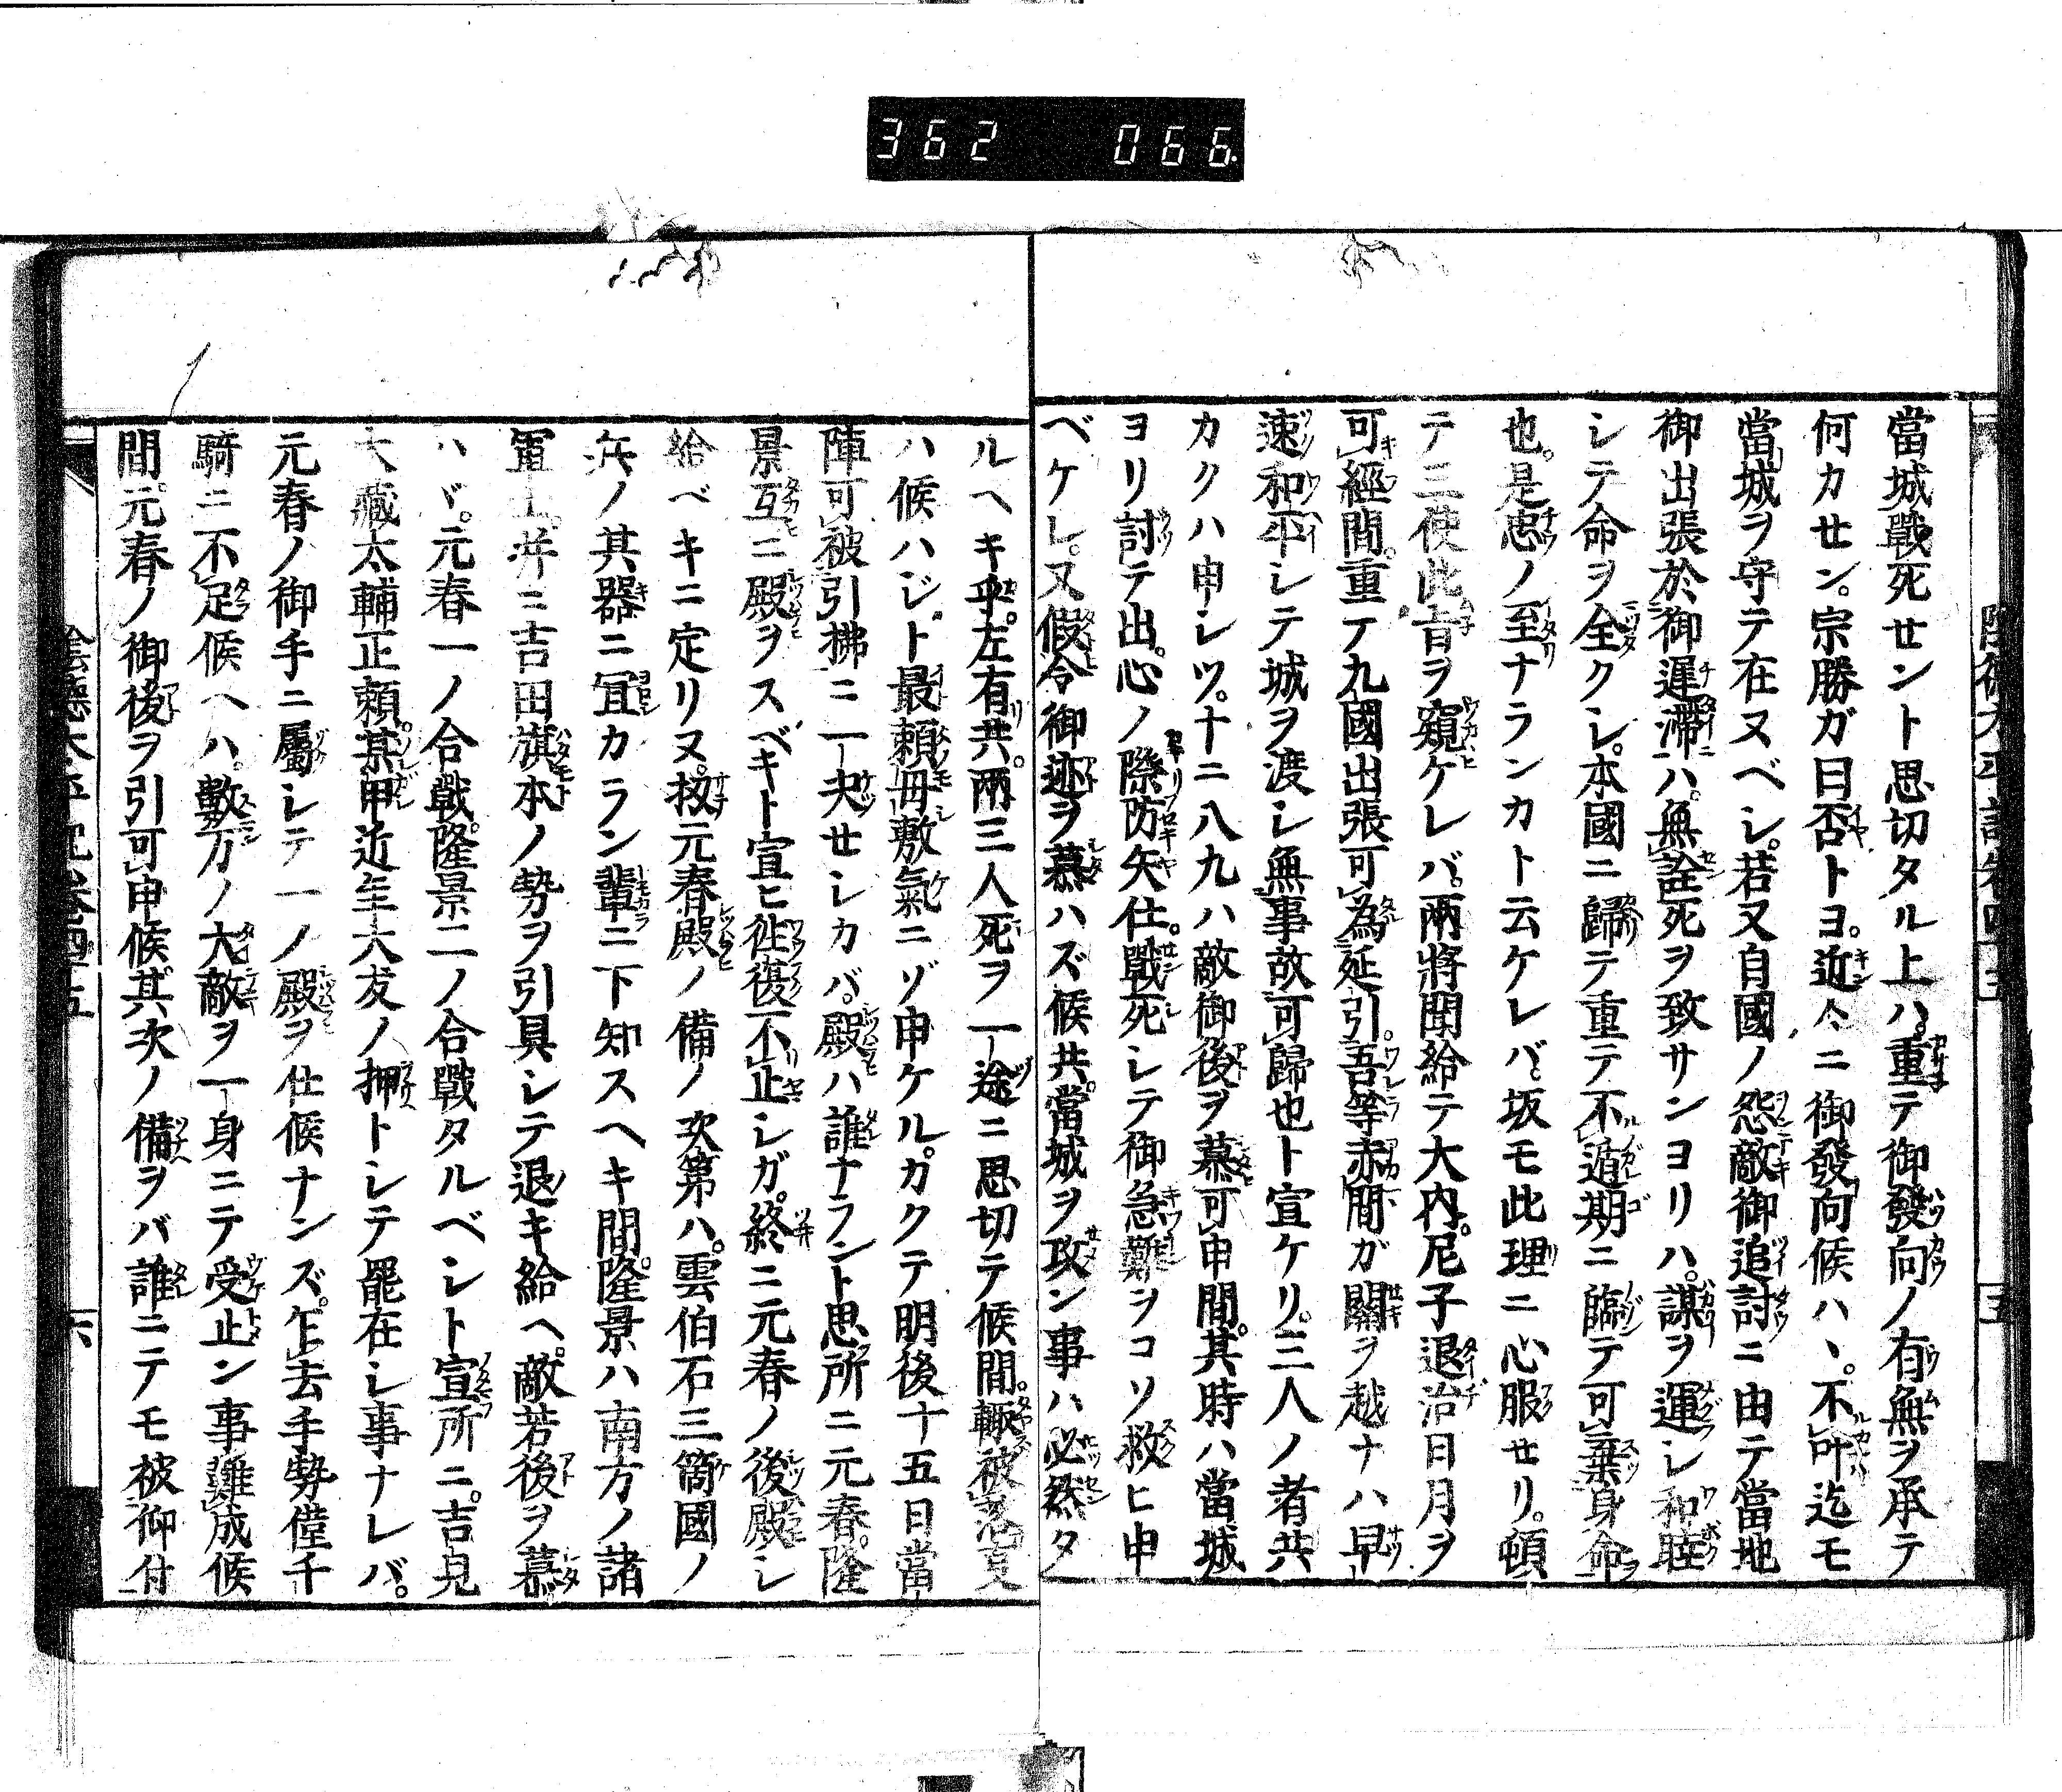 362 066.
當城戰死セント思切タル上ハ。重テ御發向ノ有無ヲ承テ
何カセン。宗勝ガ曰否トヨ。近々ニ御發向候ハヽ。不叶迄モ
當城ヲ守テ在ヌベシ。若又自國ノ怨敵御追討ニ由テ當地
御出張於御遲滯ハ。無詮死ヲ致サンヨリハ。謀ヲ運シ和睦
シテ命ヲ全クシ。本國ニ歸テ重テ不遁期ニ臨テ可棄身命
也。是忠ノ至ナランカト云ケレバ。坂モ此理ニ心服セリ。頓
テ三使此旨ヲ窺ケレバ。兩將聞給テ大内。尼子退治日月ヲ
可經間。重テ九國出張可為延引。吾等赤間ガ關ヲ越ナハ早
速和平シテ城ヲ渡シ無事故可歸也ト宣ケリ。三人ノ者共
カクハ申シツ。十ニ八九ハ敵御後ヲ慕可申間。其時ハ當城
ヨリ討テ出。心ノ際防矢仕。戰死シテ御急難ヲコソ救ヒ申
ベケレ。又假令御迹ヲ慕ハズ候共。當城ヲ攻ン事ハ必然タ
ルヘキ乎。左有共。兩三人死ヲ一途ニ思切テ候間。輙被落
ハ候ハジト最頼母敷氣ニゾ申ケル。カクテ明後十五日當
陣可被引拂ニ一决セシカバ。殿ハ誰ナラント思所ニ元春。隆
景互ニ殿ヲスベキト宣ヒ徃復不止シガ。終ニ元春ノ後殿シ
給ベキニ定リヌ。扨元春殿ノ備ノ次第ハ。雲伯石三箇國ノ
兵ノ其器ニ宜カラン輩ニ下知スヘキ間。隆景ハ南方ノ諸
軍士。并ニ吉田旗本ノ勢ヲ引具シテ退キ給ヘ。敵若後ヲ慕
ハヾ。元春一ノ合戰。隆景二ノ合戰タルベシト宣所ニ。吉見
大藏太輔正頼。某甲近年大友ノ押トシテ罷在シ事ナレバ。
元春ノ御手ニ屬シテ一ノ殿ヲ仕候ナンズ。乍去手勢僅千
騎ニ不足候ヘハ。數万ノ大敵ヲ一身ニテ受止ン事難成候
間。元春ノ御後ヲ引可申候。其次ノ備ヲバ誰ニテモ被仰付